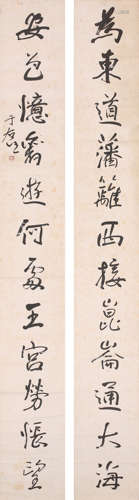 為東道藩籬西接崑崙通大海
安邑憶舊遊何處王宮勞悵望
于右任